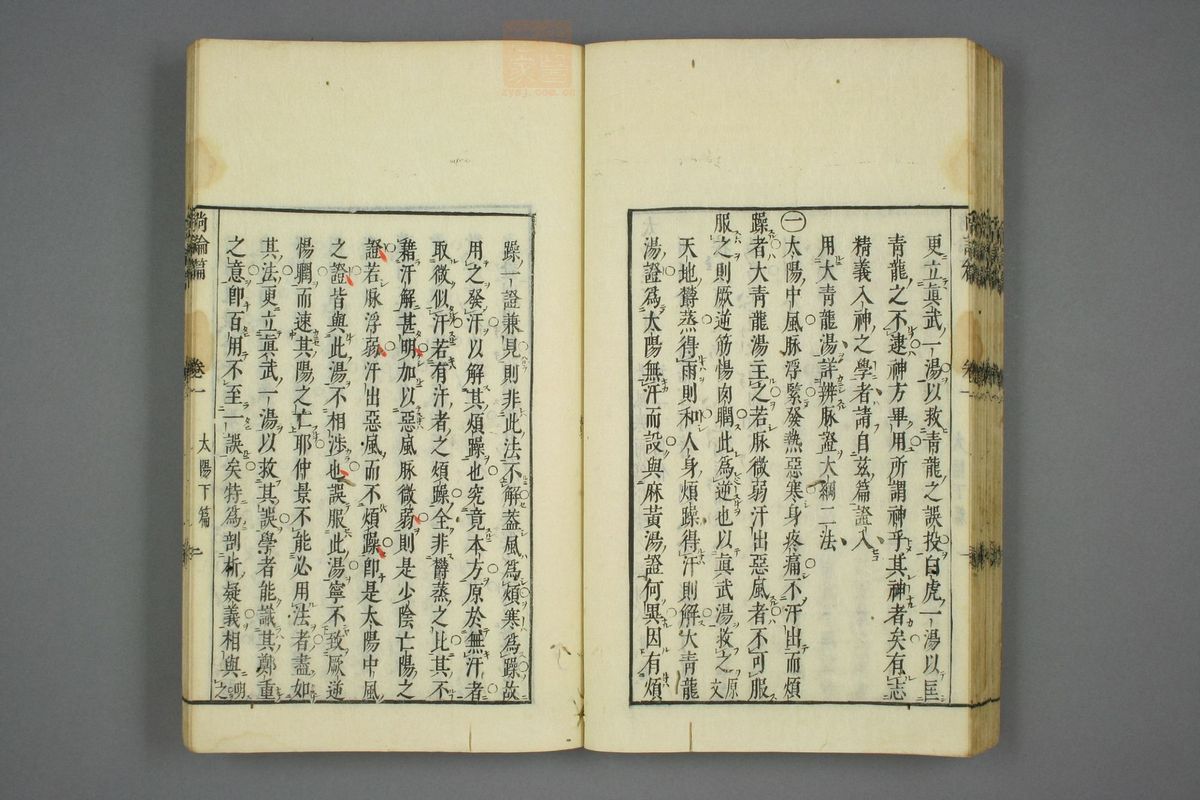 更立眞武一湯以救青龍之誤投白虎一湯以匡
青龍之不逮神方畢用所謂神乎其神者矣有志
精義入神之學者請自茲篇證入
用大青龍湯詳辨脉證大綱二法
㊀太陽中風脉浮緊發熱惡寒身疼痛不汗出而煩
躁者大青龍湯主之若脉微弱汗出惡風者不可服
服之則厥逆筋惕肉瞤此爲逆也以眞武湯救之原文
天地欝蒸得雨則和人身煩躁得汗則解大青龍
湯證爲太陽無汗而設與麻黃湯證何異因有煩
躁一證兼見則非此法不解葢風爲煩寒爲躁故
用之發汗以解其煩躁也究竟本方原於無汗者
取微似汗若有汗者之煩躁全非欝蒸之比其不
藉汗解甚明加以惡風脉微弱則是少陰亡陽之
證若脉浮弱汗出惡風而不煩躁卽是太陽中風
之證皆與此湯不相渉也誤服此湯寧不致厥逆
惕瞤而速其陽之亡耶仲景不能必用法者盡如
其法更立眞武一湯以救其誤學者能識其鄭重
之意卽百用不至一誤矣特爲剖析疑義相與明之
尚論篇
卷一
太陽下篇
二